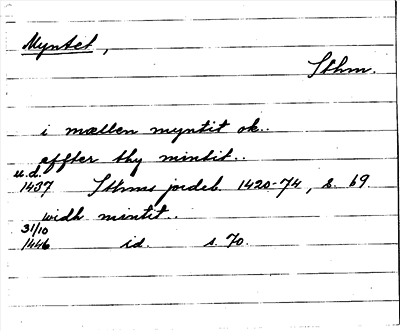 Myntet,
Sthm.
i mællen myntit ok..
effter thy mintit..
u.d.
1437 Sthms jordeb. 1420-74, s. 69.
widh mintit..
31/10
1446 id. s. 70.